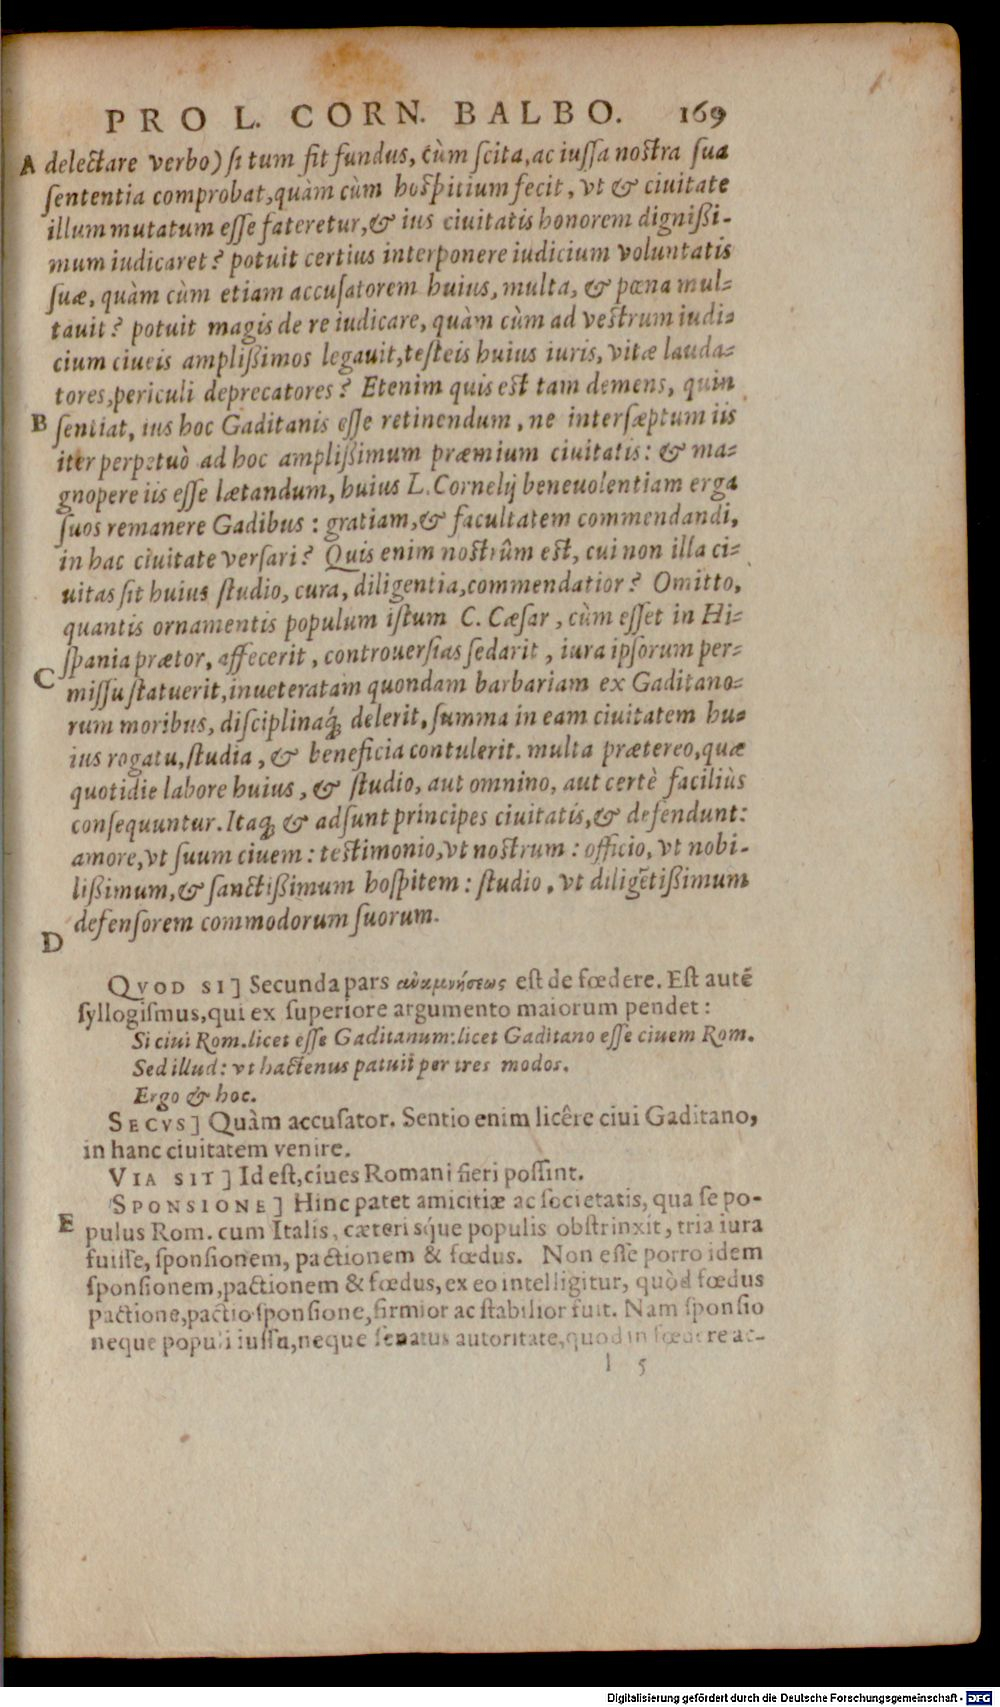 PRO L. CORN. BALBO. 169
A delectare verbo) si tum fit fundus, cùm scita, ac iussa nostra sua
sententia comprobat, quàm cùm hospitium fecit, vt & ciuitate
illum mutatum esse fateretur, & ius ciuitatis honorem dignißi-
mum iudicaret? potuit certius interponere iudicium voluntatis
suæ, quàm cùm etiam accusatorem huius, multa, & pœna mul-
tauit? potuit magis de re iudicare, quàm cùm ad vestrum iudi-
cium ciueis amplißimos legauit, testeis huius iuris, vitæ lauda-
tores, periculi deprecatores? Etenim quis est tam demens, quin
B sentiat, ius hoc Gaditanis esse retinendum, ne intersæptum iis
iter perpetuò ad hoc amplißimum præmium ciuitatis: & ma-
gnopere iis esse lætandum, huius L. Cornelij beneuolentiam erga
suos remanere Gadibus: gratiam, & facultatem commendandi,
in hac ciuitate versari? Quis enim nostrûm est, cui non illa ci-
uitas sit huius studio, cura, diligentia, commendatior? Omitto,
quantis ornamentis populum istum C. Cæsar, cùm esset in Hi-
spania prætor, affecerit, controuersias sedarit, iura ipsorum per-
C missu statuerit, inueteratam quondam barbariam ex Gaditano-
rum moribus, disciplinaq́; delerit, summa in eam ciuitatem hu-
ius rogatu, studia, & beneficia contulerit. multa prætereo, quæ
quotidie labore huius, & studio, aut omnino, aut certè faciliùs
consequuntur. Itaq; & adsunt principes ciuitatis, & defendunt:
amore, vt suum ciuem: testimonio, vt nostrum: officio, vt nobi-
lißimum, & sanctißimum hospitem: studio, vt diligētißimum
defensorem commodorum suorum.
D
QVOD SI] Secunda pars ἀναμνήσεως est de fœdere. Est autē
syllogismus, qui ex superiore argumento maiorum pendet:
Si ciui Rom. licet esse Gaditanum: licet Gaditano esse ciuem Rom.
Sed illud: vt hactenus patuit per tres modos.
Ergo & hoc.
SECVS] Quàm accusator. Sentio enim licêre ciui Gaditano,
in hanc ciuitatem venire.
VIA SIT] Id est, ciues Romani fieri possint.
SPONSIONE] Hinc patet amicitiæ ac societatis, qua se po-
E pulus Rom. cum Italis, cæterisq́ue populis obstrinxit, tria iura
fuisse, sponsionem, pactionem & fœdus. Non esse porro idem
sponsionem, pactionem & fœdus, ex eo intelligitur, quòd fœdus
pactione, pactio sponsione, firmior ac stabilior fuit. Nam sponsio
neque populi iussu, neque senatus autoritate, quod in fœdere ac-
l 5
Digitalisierung gefördert durch die Deutsche Forschungsgemeinschaft - DFG